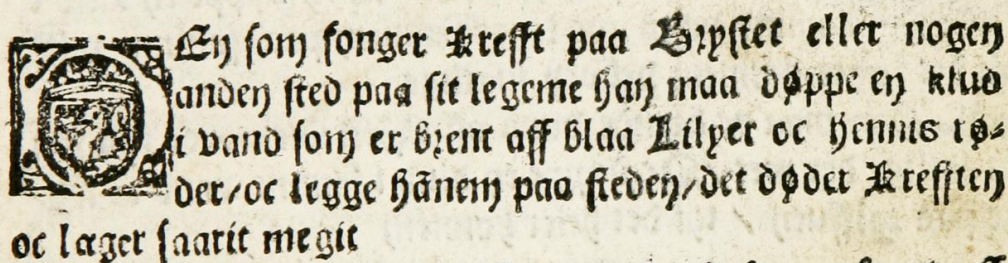 DEn som fonger Krefft paa Brystet eller nogen
anden sted paa sit legeme han maa døppe en klud
i vand som er brent aff blaa Lilyer oc hennis rø-
der/oc legge hãnem paa steden/det døder Krefften
oc læger saarit megit